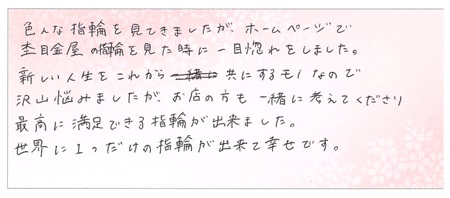 色んな指輪を見てきましたが、ホームページで
杢目金屋の指輪を見た時に一目惚れをしました。
新しい人生をこれから共にするモノなので
沢山悩みましたが、お店の方も一緒に考えてくださり
最高に満足できる指輪が出来ました。
世界に1つだけの指輪が出来て幸せです。